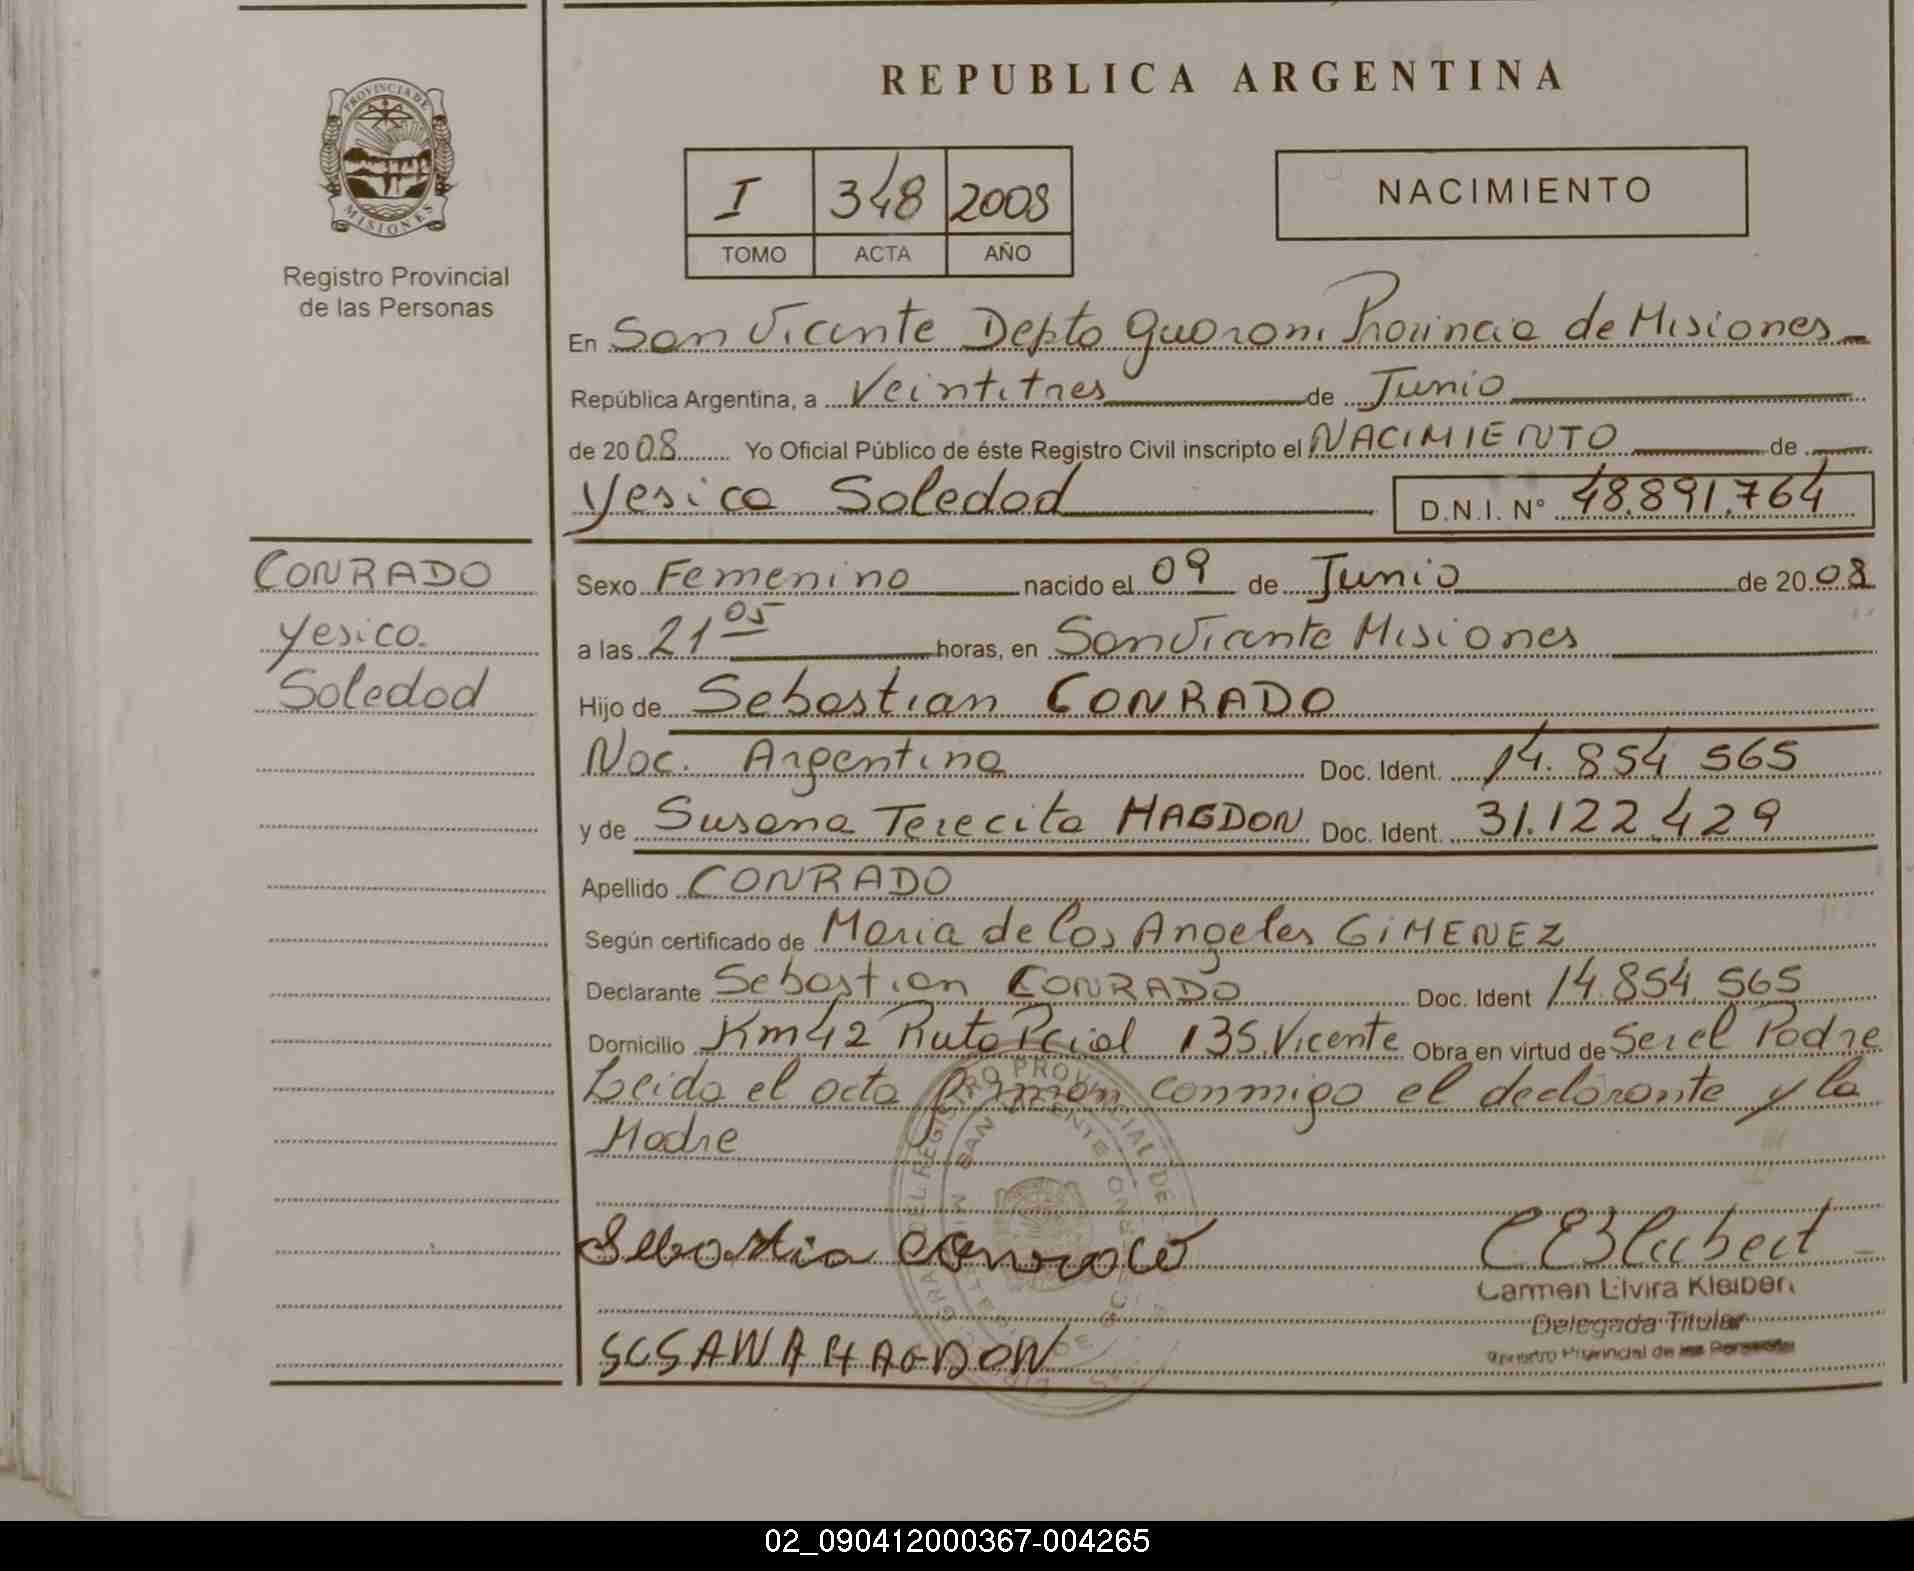 REPUBLICA ARGENTINA
PROVINCIA DE
MISIONES
Registro Provincial
de las Personas
I 348 2008
TOMO ACTA AÑO
NACIMIENTO
En San Vicente Depto Guarani Provincia de Misiones
República Argentina, a Veintitres de Junio
de 2008 Yo Oficial Público de éste Registro Civil inscripto el NACIMIENTO de
Yesica Soledad D.N.I. N° 48.891.764
CONRADO
Yesica
Soledad
Sexo Femenino nacido el 09 de Junio de 2008
a las 21 05 horas, en San Vicente Misiones
Hijo de Sebastian CONRADO
Nac. Argentina Doc. Ident. 14.854 565
y de Susana Terecita HAGDON Doc. Ident. 31.122.429
Apellido CONRADO
Según certificado de Maria de los Angeles GIMENEZ
Declarante Sebastian CONRADO Doc. Ident 14.854 565
Domicilio Km 42 Ruta Pcial 13 S. Vicente Obra en virtud de Ser el Padre
Leida el acta firman conmigo el declarante y la
Madre
Sebastia Conrado
Carmen Elvira Kleibert
Delegada Titular
Registro Provincial de las Personas
SUSANA HAGDON
02_090412000367-004265